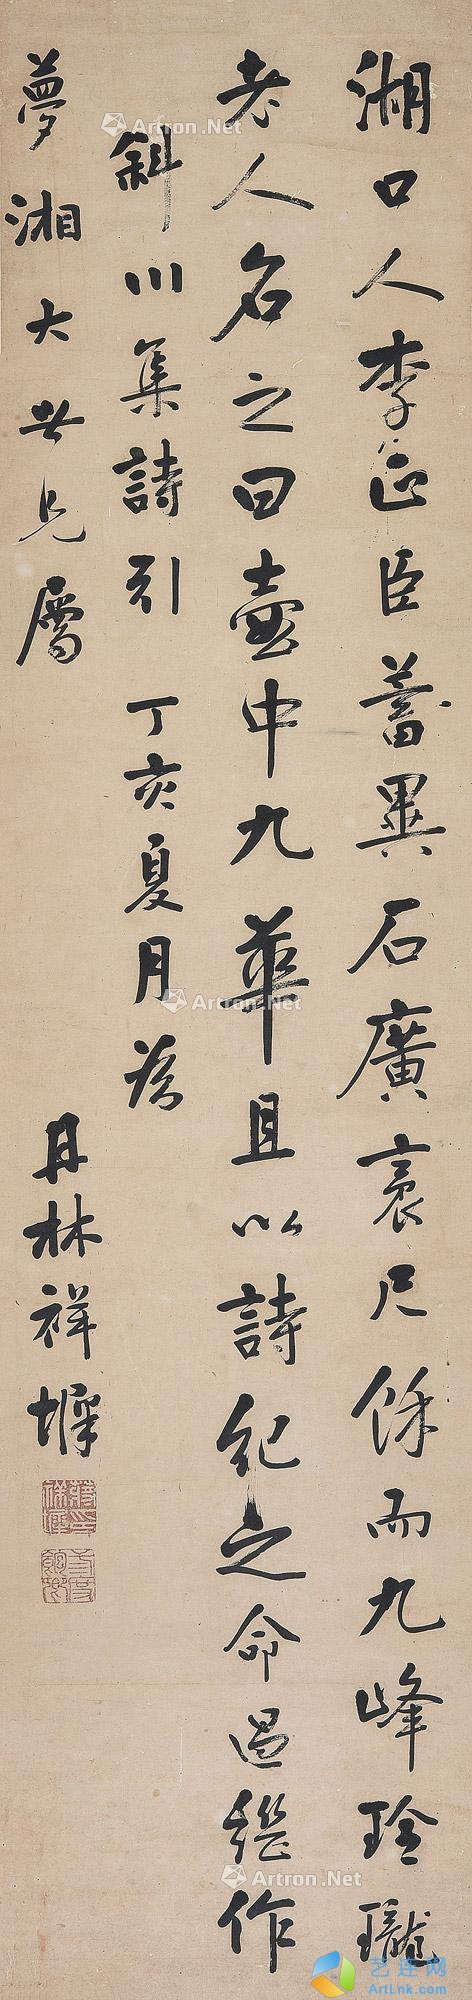 湖口人李正臣蓄異石廣袤尺餘而九峰玲瓏
老人名之曰壺中九華且以詩紀之命過繼作
斜川集詩引 丁亥夏月為
夢湘大世兄屬 丹林祥墀
蔣印祥墀
Artron.Net
Artron.Net
Artron.Net
Artron.Net
Artron.Net
艺连网